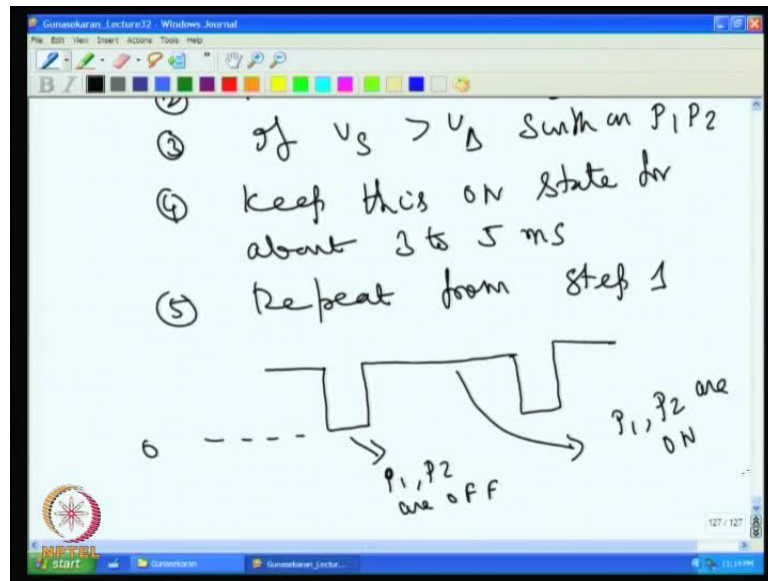 Gunasekaran_Lecture32 - Windows Journal
File Edit View Insert Actions Tools Help
B I
②
③ If VS > VΔ Switch on P1 P2
④ Keep this ON state for
about 3 to 5 ms
⑤ Repeat from step 1
0
P1, P2
are OFF
P1, P2 are
ON
127 / 127
NPTEL
start
Gunasekaran
Gunasekaran_Lectur...
11:14 PM